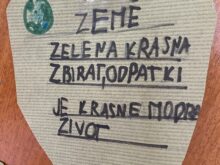 ZEMĚ
ZELENA KRASNA
ZBIRAT, ODPATKI
JE KRASNE MODRE
ŽIVOT